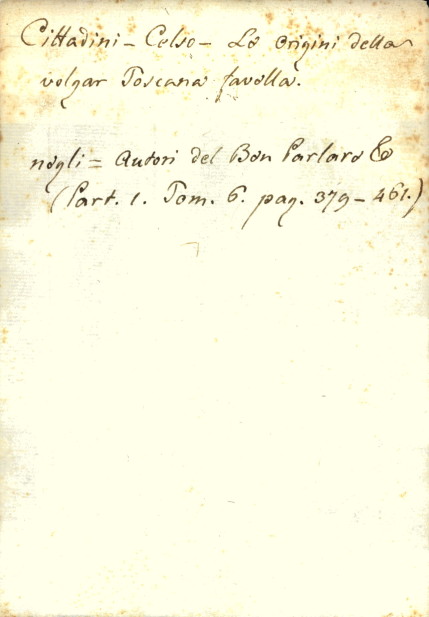 Cittadini - Celso - Le origini della
volgar Toscana favella.
negli = Autori del Ben Parlare &c
(Part. 1. Tom. 6. pag. 379 - 461.)